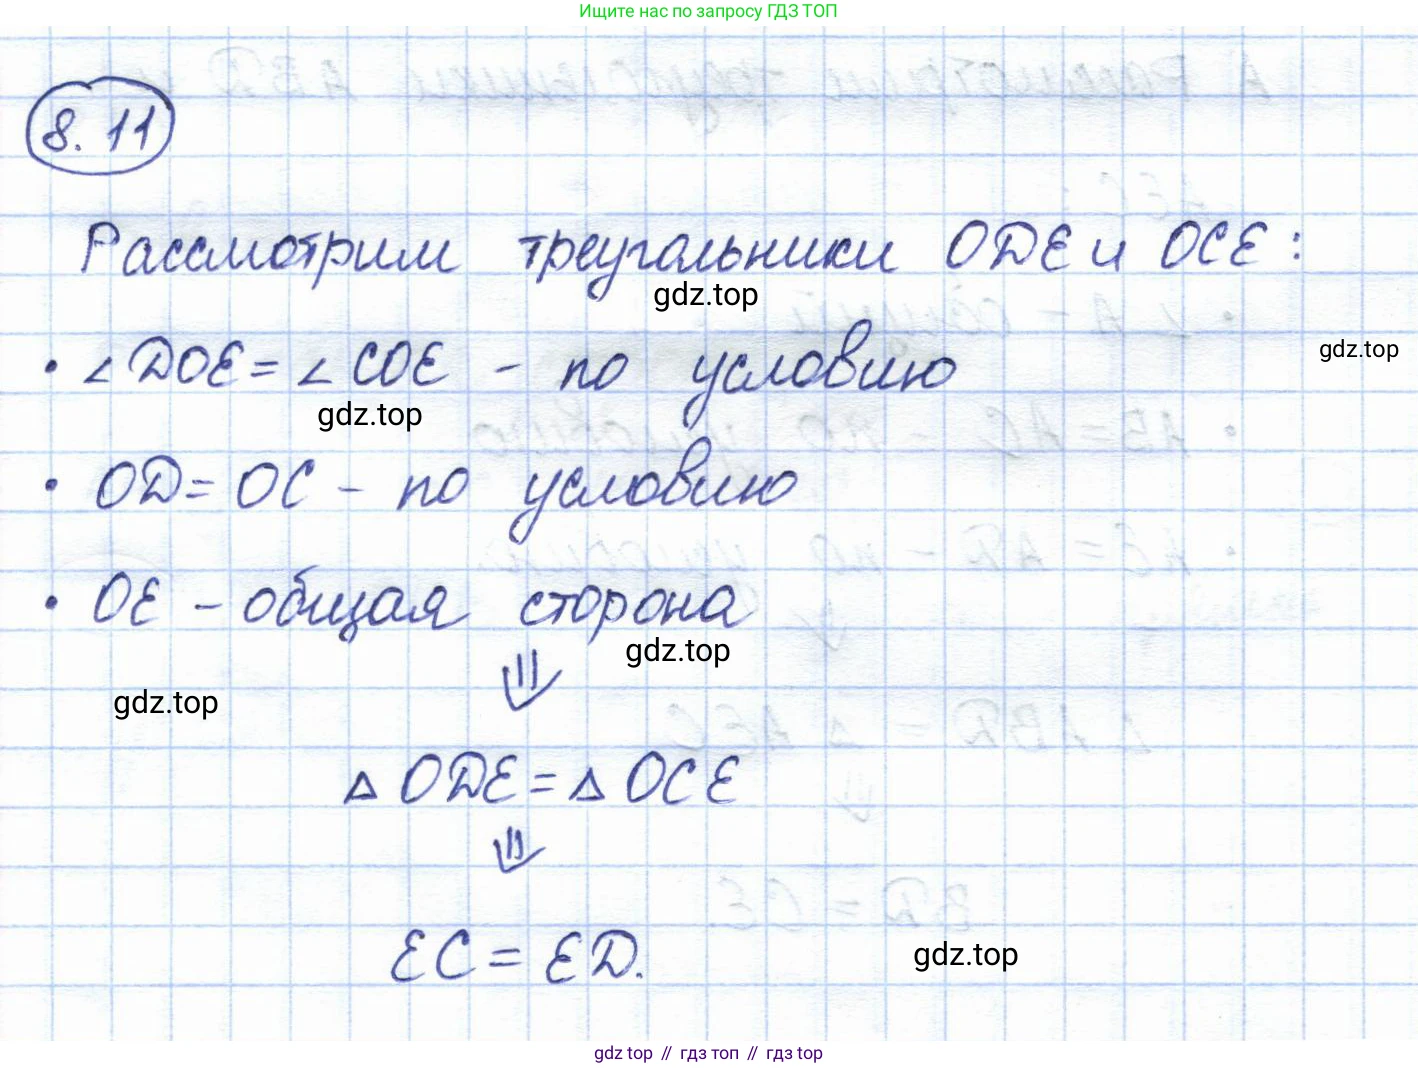 Ищите нас по запросу ГДЗ ТОП
8.11
Рассмотрим треугольники ODE и OCE:
gdz.top
gdz.top
• ∠DOE = ∠COE - по условию
gdz.top
• OD = OC - по условию
• OE - общая сторона
gdz.top
⇓
gdz.top
△ ODE = △ OCE
⇓
EC = ED.
gdz.top
gdz top // гдз топ // гдз top